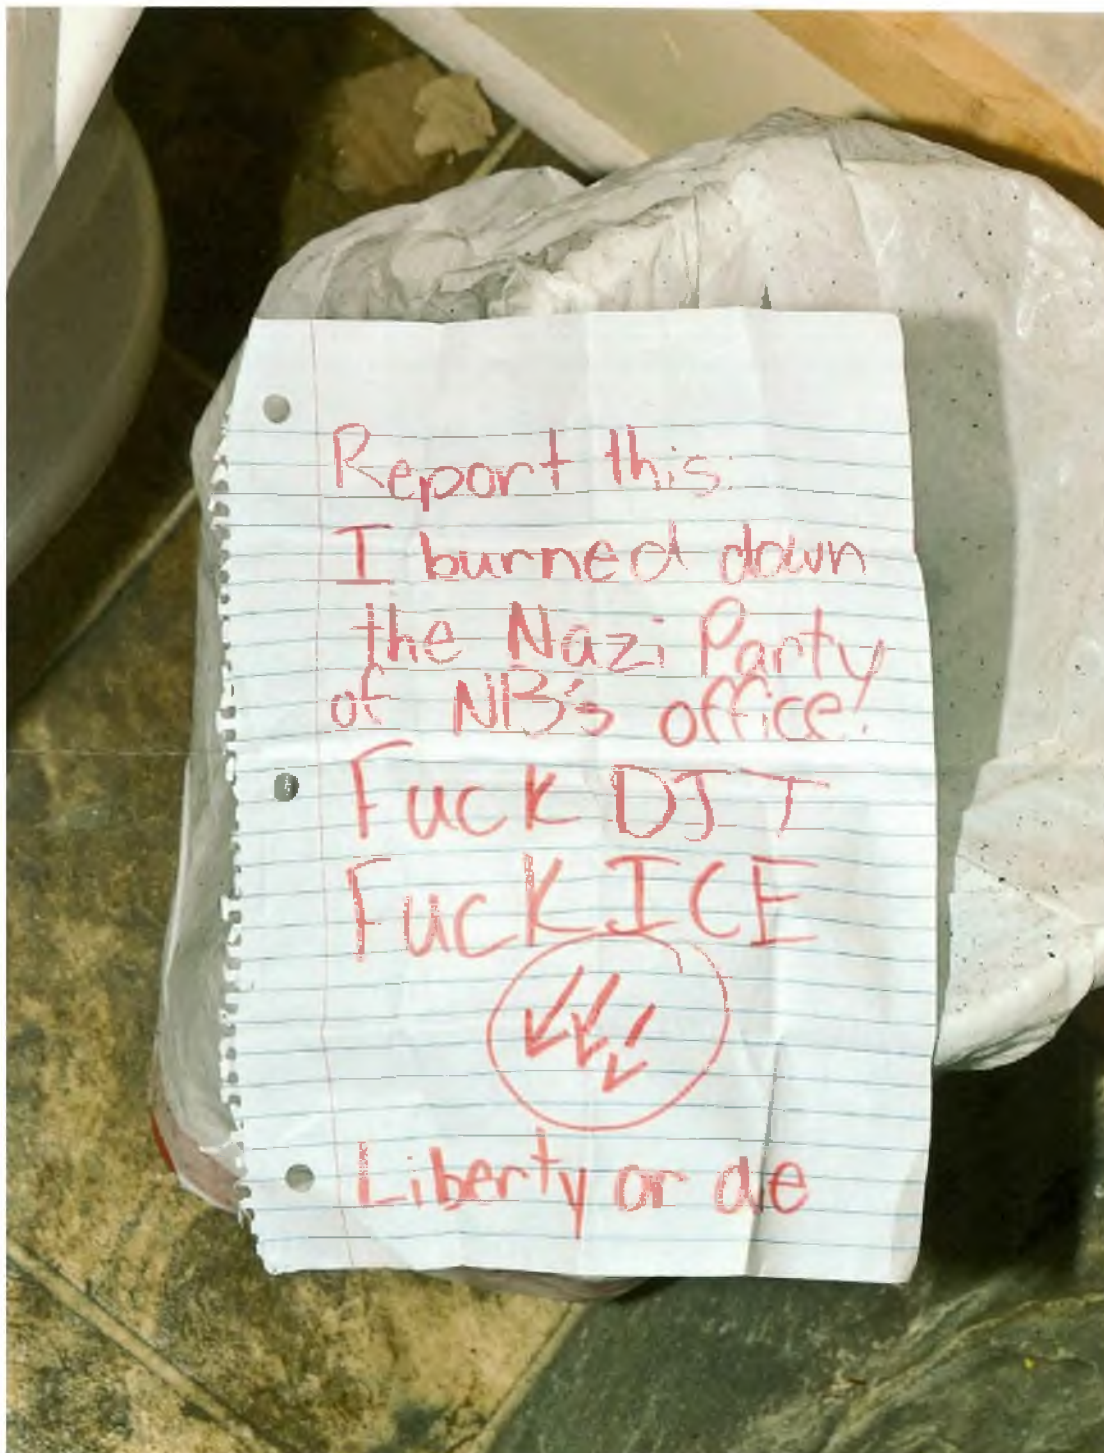 Report this:
I burned down
the Nazi Party
of NB's office!
Fuck DJT
Fuck ICE
Liberty or die